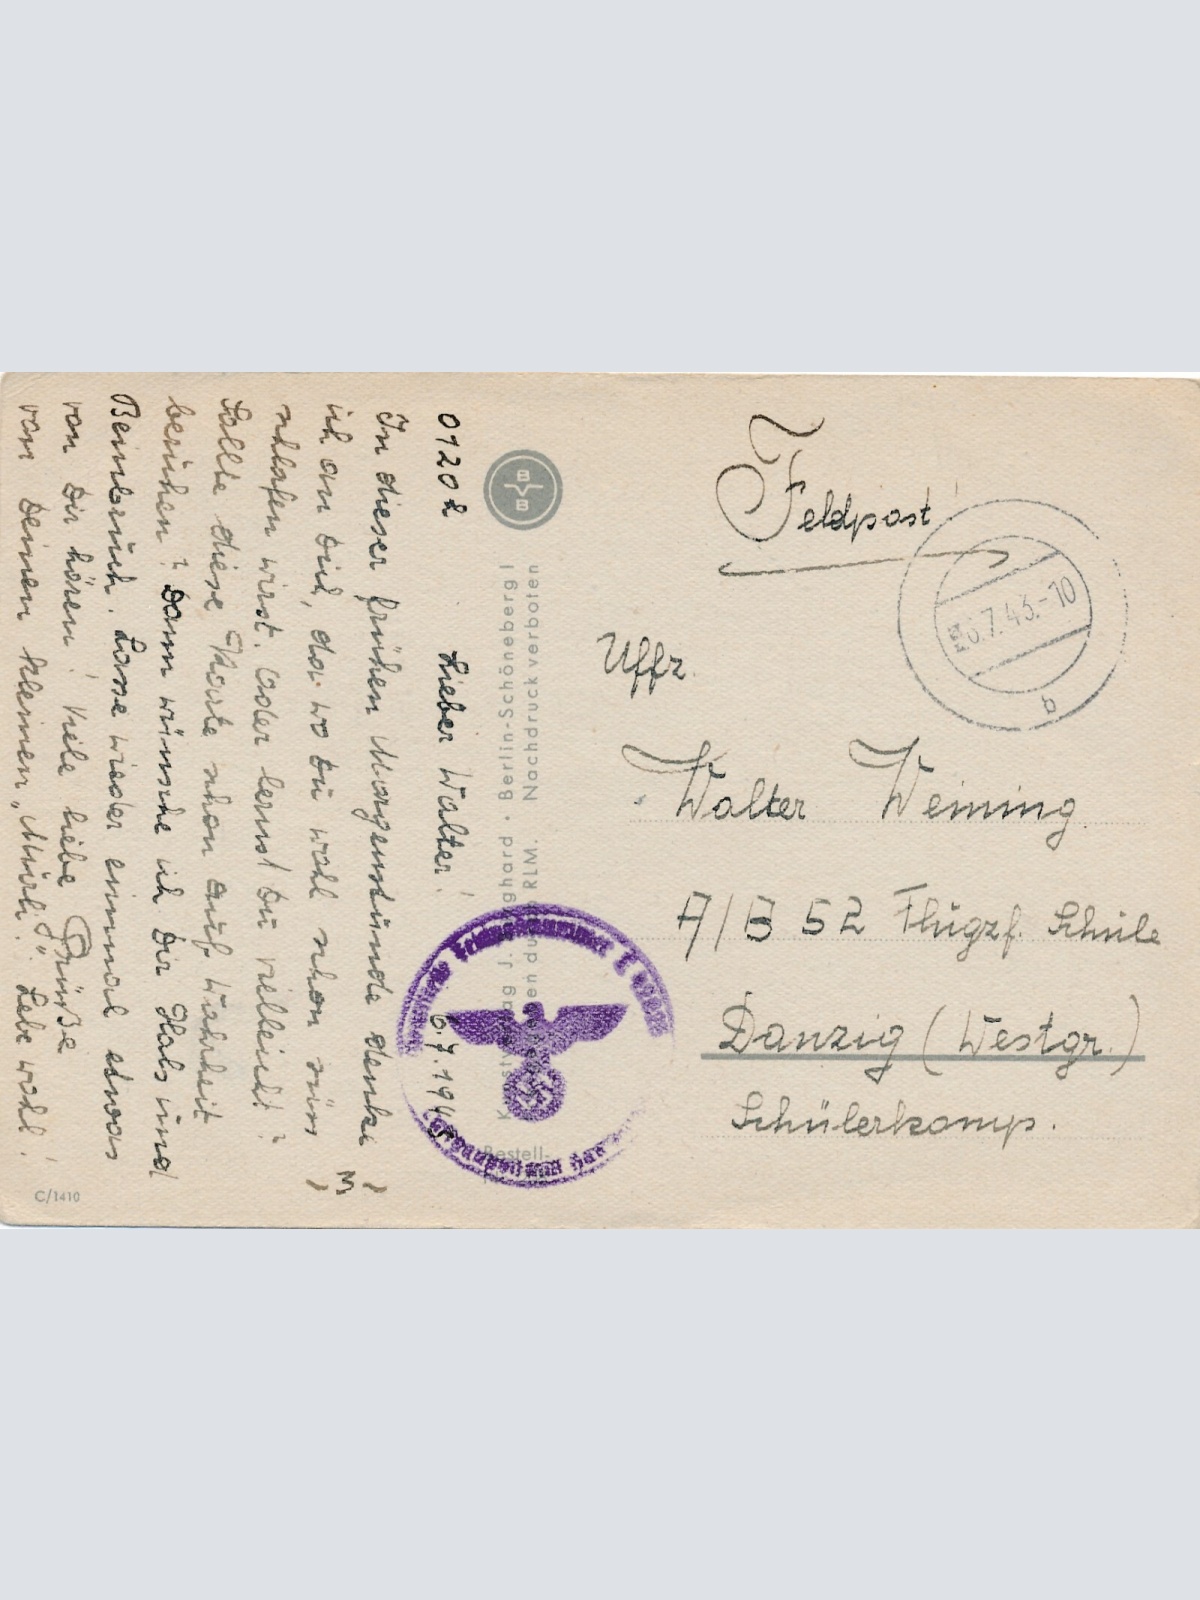 Feldpost
6.7.43.-10
a
Uffz.
Walter Weining
A/B 52 Flugzf. Schule
Danzig (Westgr.)
Schülerkomp.
B V B
Berlin-Schöneberg I
Nachdruck verboten
RLM.
Bestell-
C/1410
0120 h
Lieber Walter!
6.7.194
In dieser frühen Morgenstunde denke
ich an Dich, da wo Du wohl schon
schlafen wirst. Oder lernst Du vielleicht?
Sollte diese Karte schon auf Wahrheit
beruhen? Dann wünsche ich Dir Hals und
Beinbruch. Lasse wieder einmal etwas
von Dir hören! Viele liebe Grüße
von Deinem kleinen „ “. Lebe wohl!